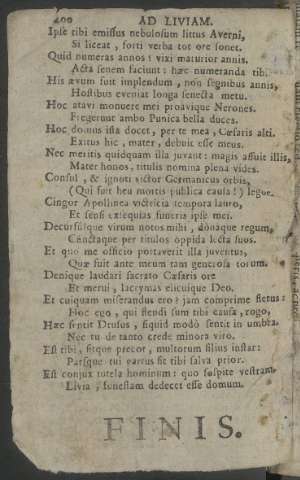 400 AD LIVIAM.
Ipse tibi emissus nebulosum littus Averni,
Si liceat, forti verba tot ore sonet.
Quid numeras annos? vixi maturior annis.
Acta senem faciunt: hæc numeranda tibi.
His ævum fuit implendum, non segnibus annis,
Hostibus eveniat longa senecta metu.
Hoc atavi monuere mei proavique Nerones.
Fregerunt ambo Punica bella duces.
Hoc domus ista docet, per te mea, Cæsaris alti.
Exitus hic, mater, debuit esse meus.
Nec meritis quidquam illa juvant: magis assuit illis,
Mater honos, titulis nomina plena vides.
Consul, & ignoti victor Germanicus orbis,
(Qui fuit heu mortis publica causa!) legor.
Cingor Apollinea victricia tempora lauro,
Et sensi exsequias funeris ipse mei.
Decursusque virum notos mihi, donaque regum,
Cunctaque per titulos oppida lecta suos.
Et quo me officio portaverit illa juventus,
Quæ fuit ante meum tam generosa torum.
Denique laudari sacrato Cæsaris ore
Et merui, lacrymas elicuique Deo.
Et cuiquam miserandus ero? jam comprime fletus:
Hoc ego, qui flendi sum tibi causa, rogo,
Hæc sentit Drusus, siquid modò sentit in umbra.
Nec tu de tanto crede minora viro.
Est tibi, sitque precor, multorum filius instar:
Parsque tui partus sit tibi salva prior.
Est conjux tutela hominum: quo sospite vestram,
Livia, funestam dedecet esse domum.
FINIS.